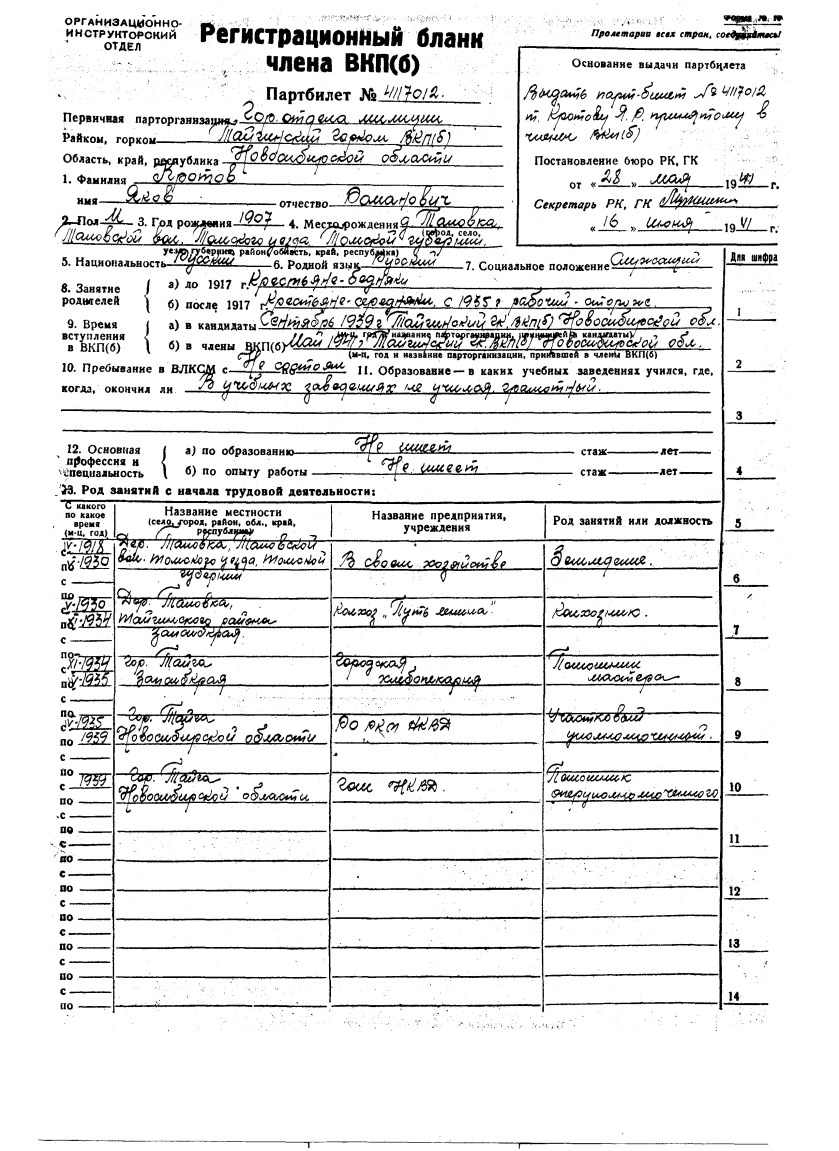 ОРГАНИЗАЦИОННО-
ИНСТРУКТОРСКИЙ
ОТДЕЛ
Регистрационный бланк
члена ВКП(б)
Партбилет № 4117012.
Пролетарии всех стран, соединяйтесь!
Основание выдачи партбилета
Выдать парт-билет № 4117012
т. Кротову Я.Р. принятому в
члены ВКП(б)
Постановление бюро РК, ГК
от «28» мая 1941 г.
Секретарь РК, ГК
«16» июня 1941 г.
Первичная парторганизация Гор. отдела милиции
Райком, горком Тайгинский Горком ВКП(б)
Область, край, республика Новосибирской области
1. Фамилия Кротов
имя Яков отчество Романович
2. Пол М 3. Год рождения 1907 4. Место рождения д. Таловка,
(город, село,
Таловской вол. Томского уезда Томской губернии.
уезд, губерния, район, область, край, республика)
5. Национальность Русский 6. Родной язык Русский 7. Социальное положение Служащий
8. Занятие родителей
а) до 1917 г. Крестьяне-бедняки
б) после 1917 г. Крестьяне-середняки, с 1935 г рабочий
9. Время вступления в ВКП(б)
а) в кандидаты Сентябрь 1939 г Тайгинский гк. ВКП(б) Новосибирской обл.
(м-ц, год и название парторганизации, принявшей в кандидаты)
б) в члены ВКП(б) Май 1941 г Тайгинский гк. ВКП(б) Новосибирской обл.
(м-ц, год и название парторганизации, принявшей в члены ВКП(б)
10. Пребывание в ВЛКСМ с Не состоял 11. Образование — в каких учебных заведениях учился, где,
когда, окончил ли В учебных заведениях не учился, грамотный.
12. Основная профессия и специальность
а) по образованию Не имеет стаж лет
б) по опыту работы Не имеет стаж лет
13. Род занятий с начала трудовой деятельности:
С какого по какое время (м-ц, год)
Название местности
(село, город, район, обл., край, республика)
Название предприятия, учреждения
Род занятий или должность
с IV-1918 Дер. Таловка, Таловской
по 1930 вол. Томского уезда, Томской В своем хозяйстве Земледелие.
с губернии
по
с V-1930 Дер. Таловка,
по XI-1934 Тайгинского района Колхоз „Путь ленина" Колхозник.
с Запсибкрая.
по
с XI-1934 гор. Тайга Городская Помошник
по V-1935 Запсибкрая хлебопекарня мастера
с
по
с V-1935 Гор. Тайга РО РКМ НКВД Участковый
по 1939 Новосибирской области уполномоченный.
с
по
с 1939 Гор. Тайга Помошник
по Новосибирской области НКВД. оперуполномоченного
с
по
с
по
с
по
с
по
с
по
с
по
с
по
Для шифра
1
2
3
4
5
6
7
8
9
10
11
12
13
14